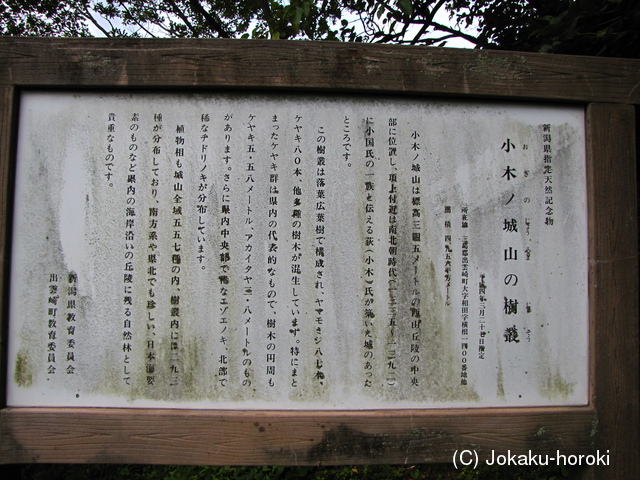 新潟県指定天然記念物
小木ノ城山の樹叢
おぎのじょうやま じゅそう
平成四年三月二十七日指定
所在地 三島郡出雲崎町大字相田字横根一四〇〇番地他
面積
小木ノ城山は標高三四五メートルの西山丘陵の中央
部に位置し、頂上付近は南北朝時代(一三三五~一三九二)
に小国氏の一族と伝える荻(小木)氏が築いた城のあった
ところです。
この樹叢は落葉広葉樹で構成され、ヤマモミジ八七本、
ケヤキ八〇本、他多種の樹木が混生しています。特にまと
まったケヤキ群は県内の代表的なもので、樹木の円周も
ケヤキ五・五八メートル、アカイタヤ三・八メートルのもの
があります。さらに県内中央部で稀なエゾエノキ、北部で
稀なチドリノキが分布しています。
植物相も城山全域五五七種の内、樹叢内には二九三
種が分布しており、南方系や県北でも珍しい、日本海要
素のものなど県内の海岸沿いの丘陵に残る自然林として
貴重なものです。
新潟県教育委員会
出雲崎町教育委員会
(C) Jokaku-horoki